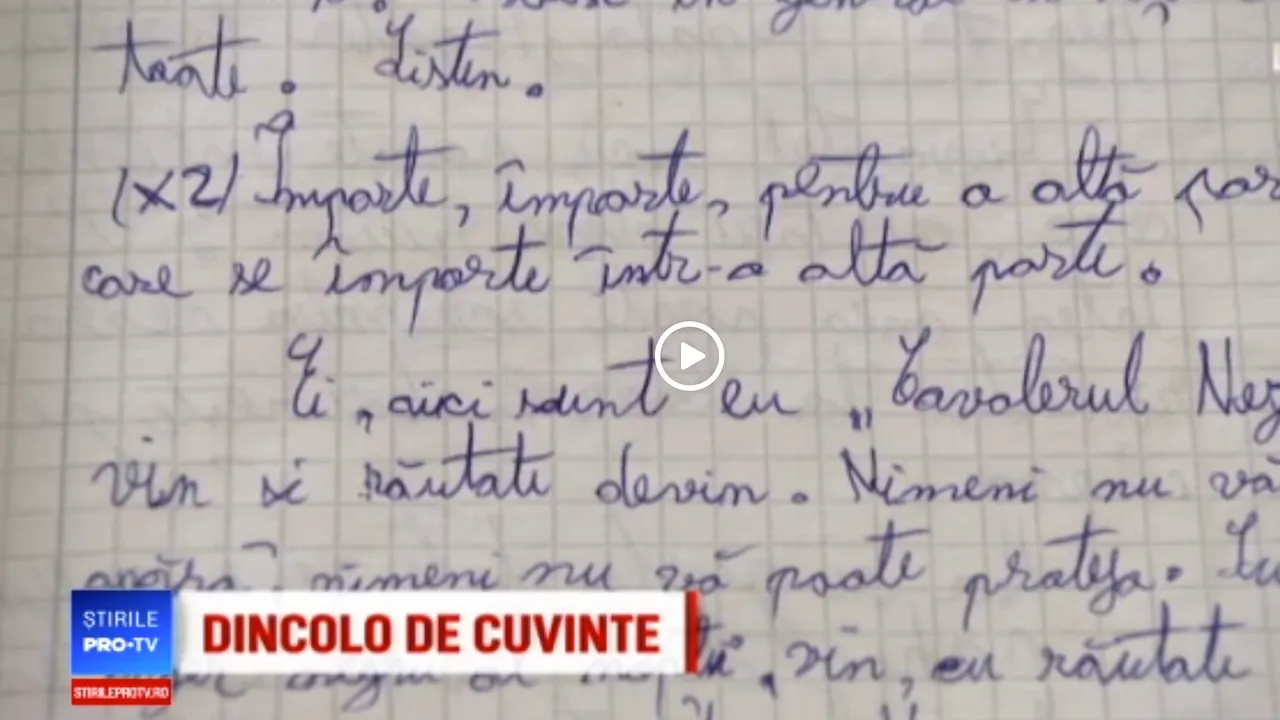 toate. Listen.
(X2) Împarte, împarte, pentru a altă par
care se împarte într-o altă parte.
Ei, aici sunt eu "Cavalerul Neg
vin si răutate devin. Nimeni nu vă
apăra, nimeni nu vă poate proteja.
vin, eu răutate
ȘTIRILE
PRO•TV
STIRILEPROTV.RO
DINCOLO DE CUVINTE